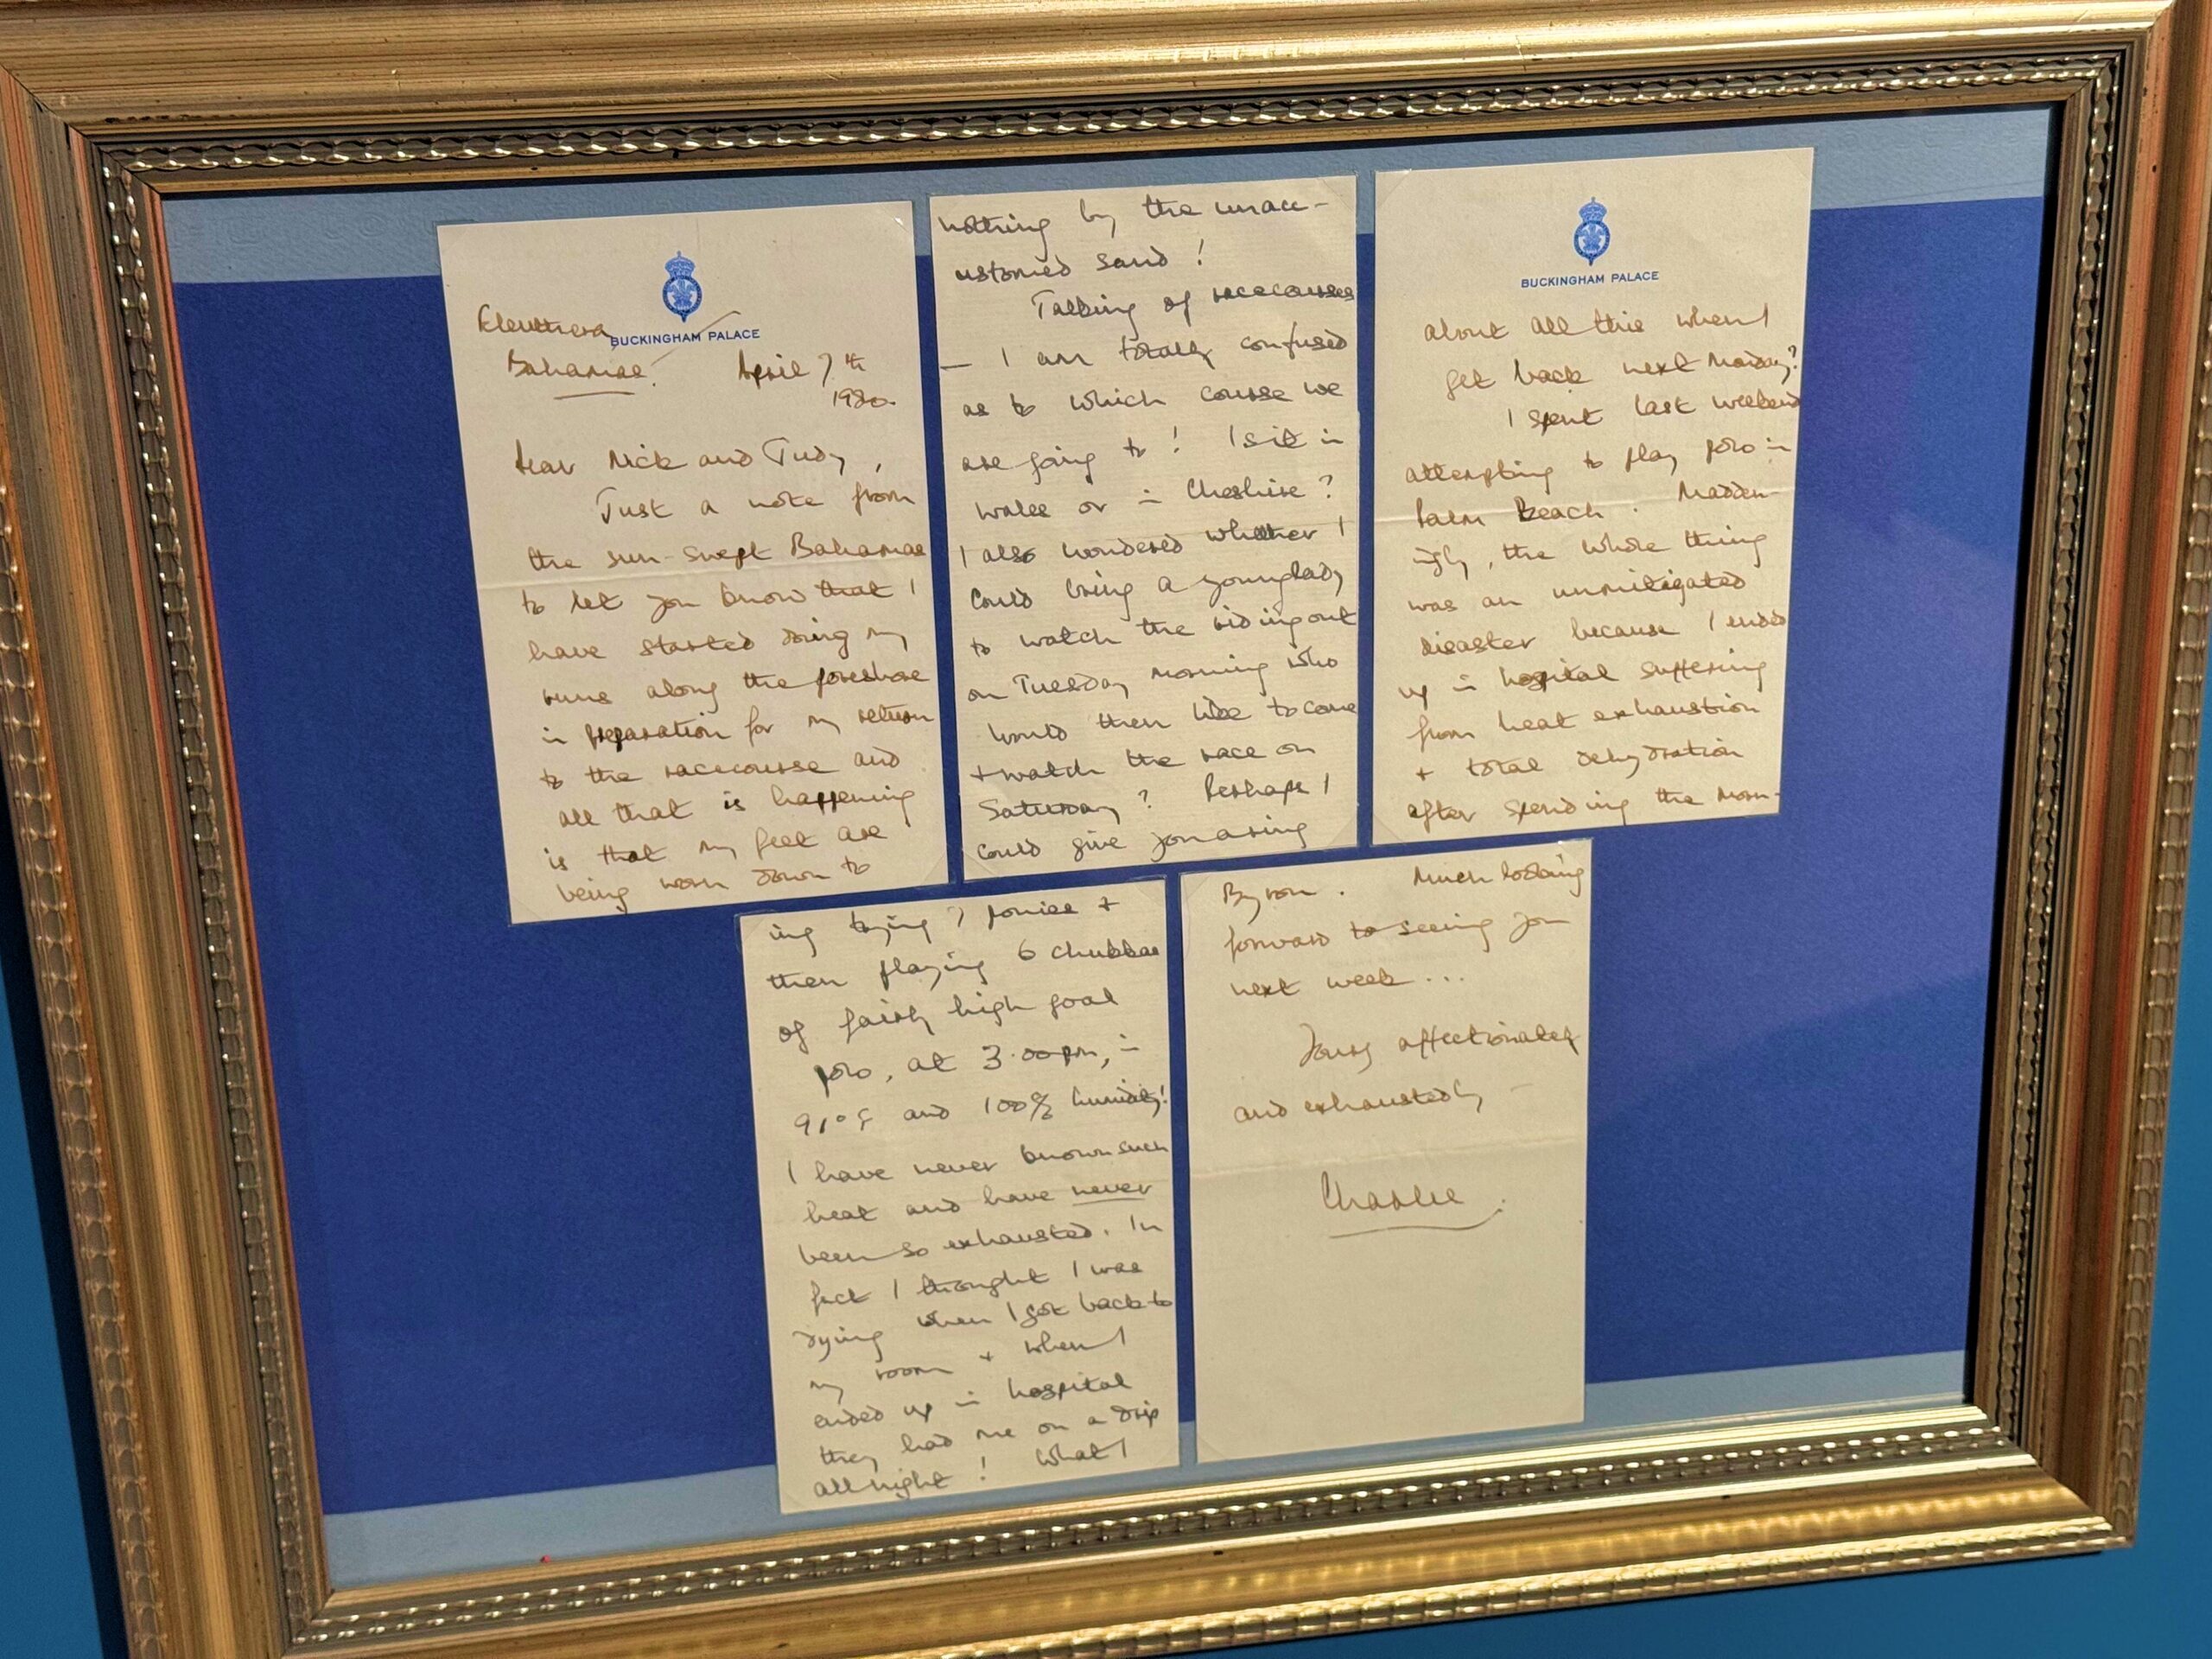 Eleuthera
BUCKINGHAM PALACE
Bahamas. April 7th
1980.
Dear Nick and Judy,
Just a note from
the sun-swept Bahamas
to let you know that I
have started doing my
runs along the foreshore
in preparation for my return
to the racecourse and
all that is happening
is that my feet are
being worn down to
nothing by the unacc-
ustomed sand!
Talking of racecourses
— I am totally confused
as to which course we
are going to! Is it in
Wales or in Cheshire?
I also wondered whether I
could bring a young lady
to watch the riding out
on Tuesday morning who
would then like to come
+ watch the race on
Saturday? Perhaps I
could give you a ring
BUCKINGHAM PALACE
about all this when I
get back next Monday?
I spent last weekend
attempting to play polo in
Palm Beach. Madden-
ingly, the whole thing
was an unmitigated
disaster because I ended
up in hospital suffering
from heat exhaustion
+ total dehydration
after spending the morn-
ing trying 7 ponies +
then playing 6 chukkas
of fairly high goal
polo, at 3.00pm, in
91°F and 100% humidity!
I have never known such
heat and have never
been so exhausted. In
fact I thought I was
dying when I got back to
my room + when I
ended up in hospital
they had me on a drip
all night! What I
Byron. Much looking
forward to seeing you
next week...
Yours affectionately
and exhaustedly
Charlie.